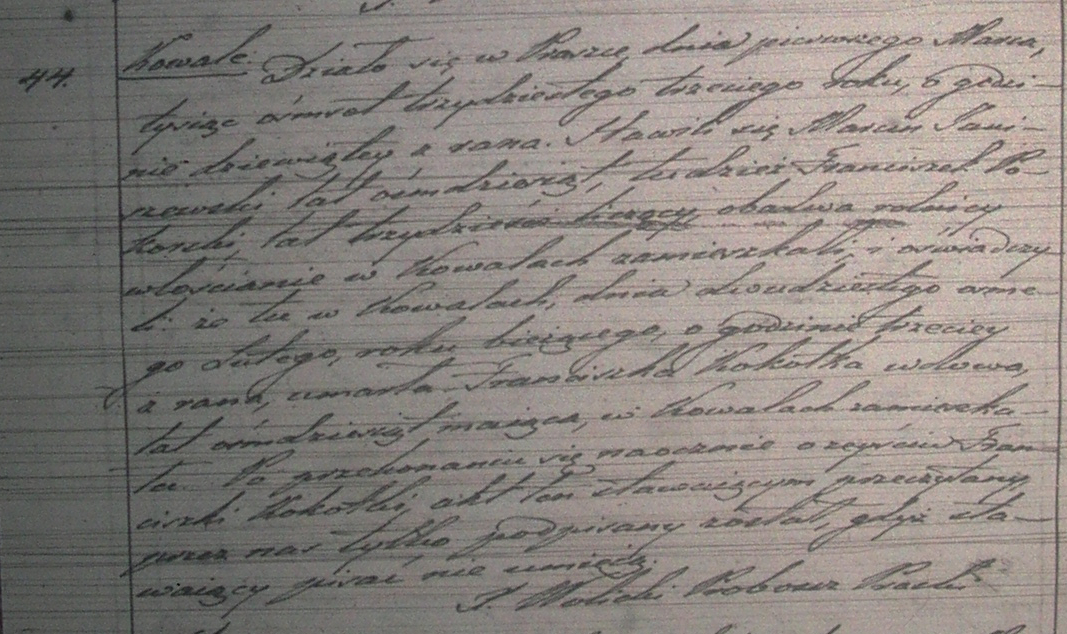 44.
Kowale. Działo się w Praszce dnia pierwszego Marca,
tysiąc ośmset trzydziestego trzeciego roku, o godzi-
nie dziewiątey z rana. Stawili się Marcin Jani-
szewski lat ośmdziesiąt, tudzież Franciszek Po-
korski, lat trzydzieści liczący, obadwa rolnicy
włościanie w Kowalach zamieszkali, i oświadczy-
li: że tu w Kowalach, dnia dwudziestego osme-
go Lutego, roku bieżącego, o godzinie trzeciey
z rana, umarła Franciszka Kokotka wdowa,
lat ośmdziesiąt maiąca, w Kowalach zamieszka-
ła. Po przekonaniu się naocznie o zeyściu Fran-
ciszki Kokotki, akt ten stawaiącym przeczytany
przez nas tylko podpisany został, gdyż sta-
waiący pisać nie umieią.
Wolicki Proboszcz